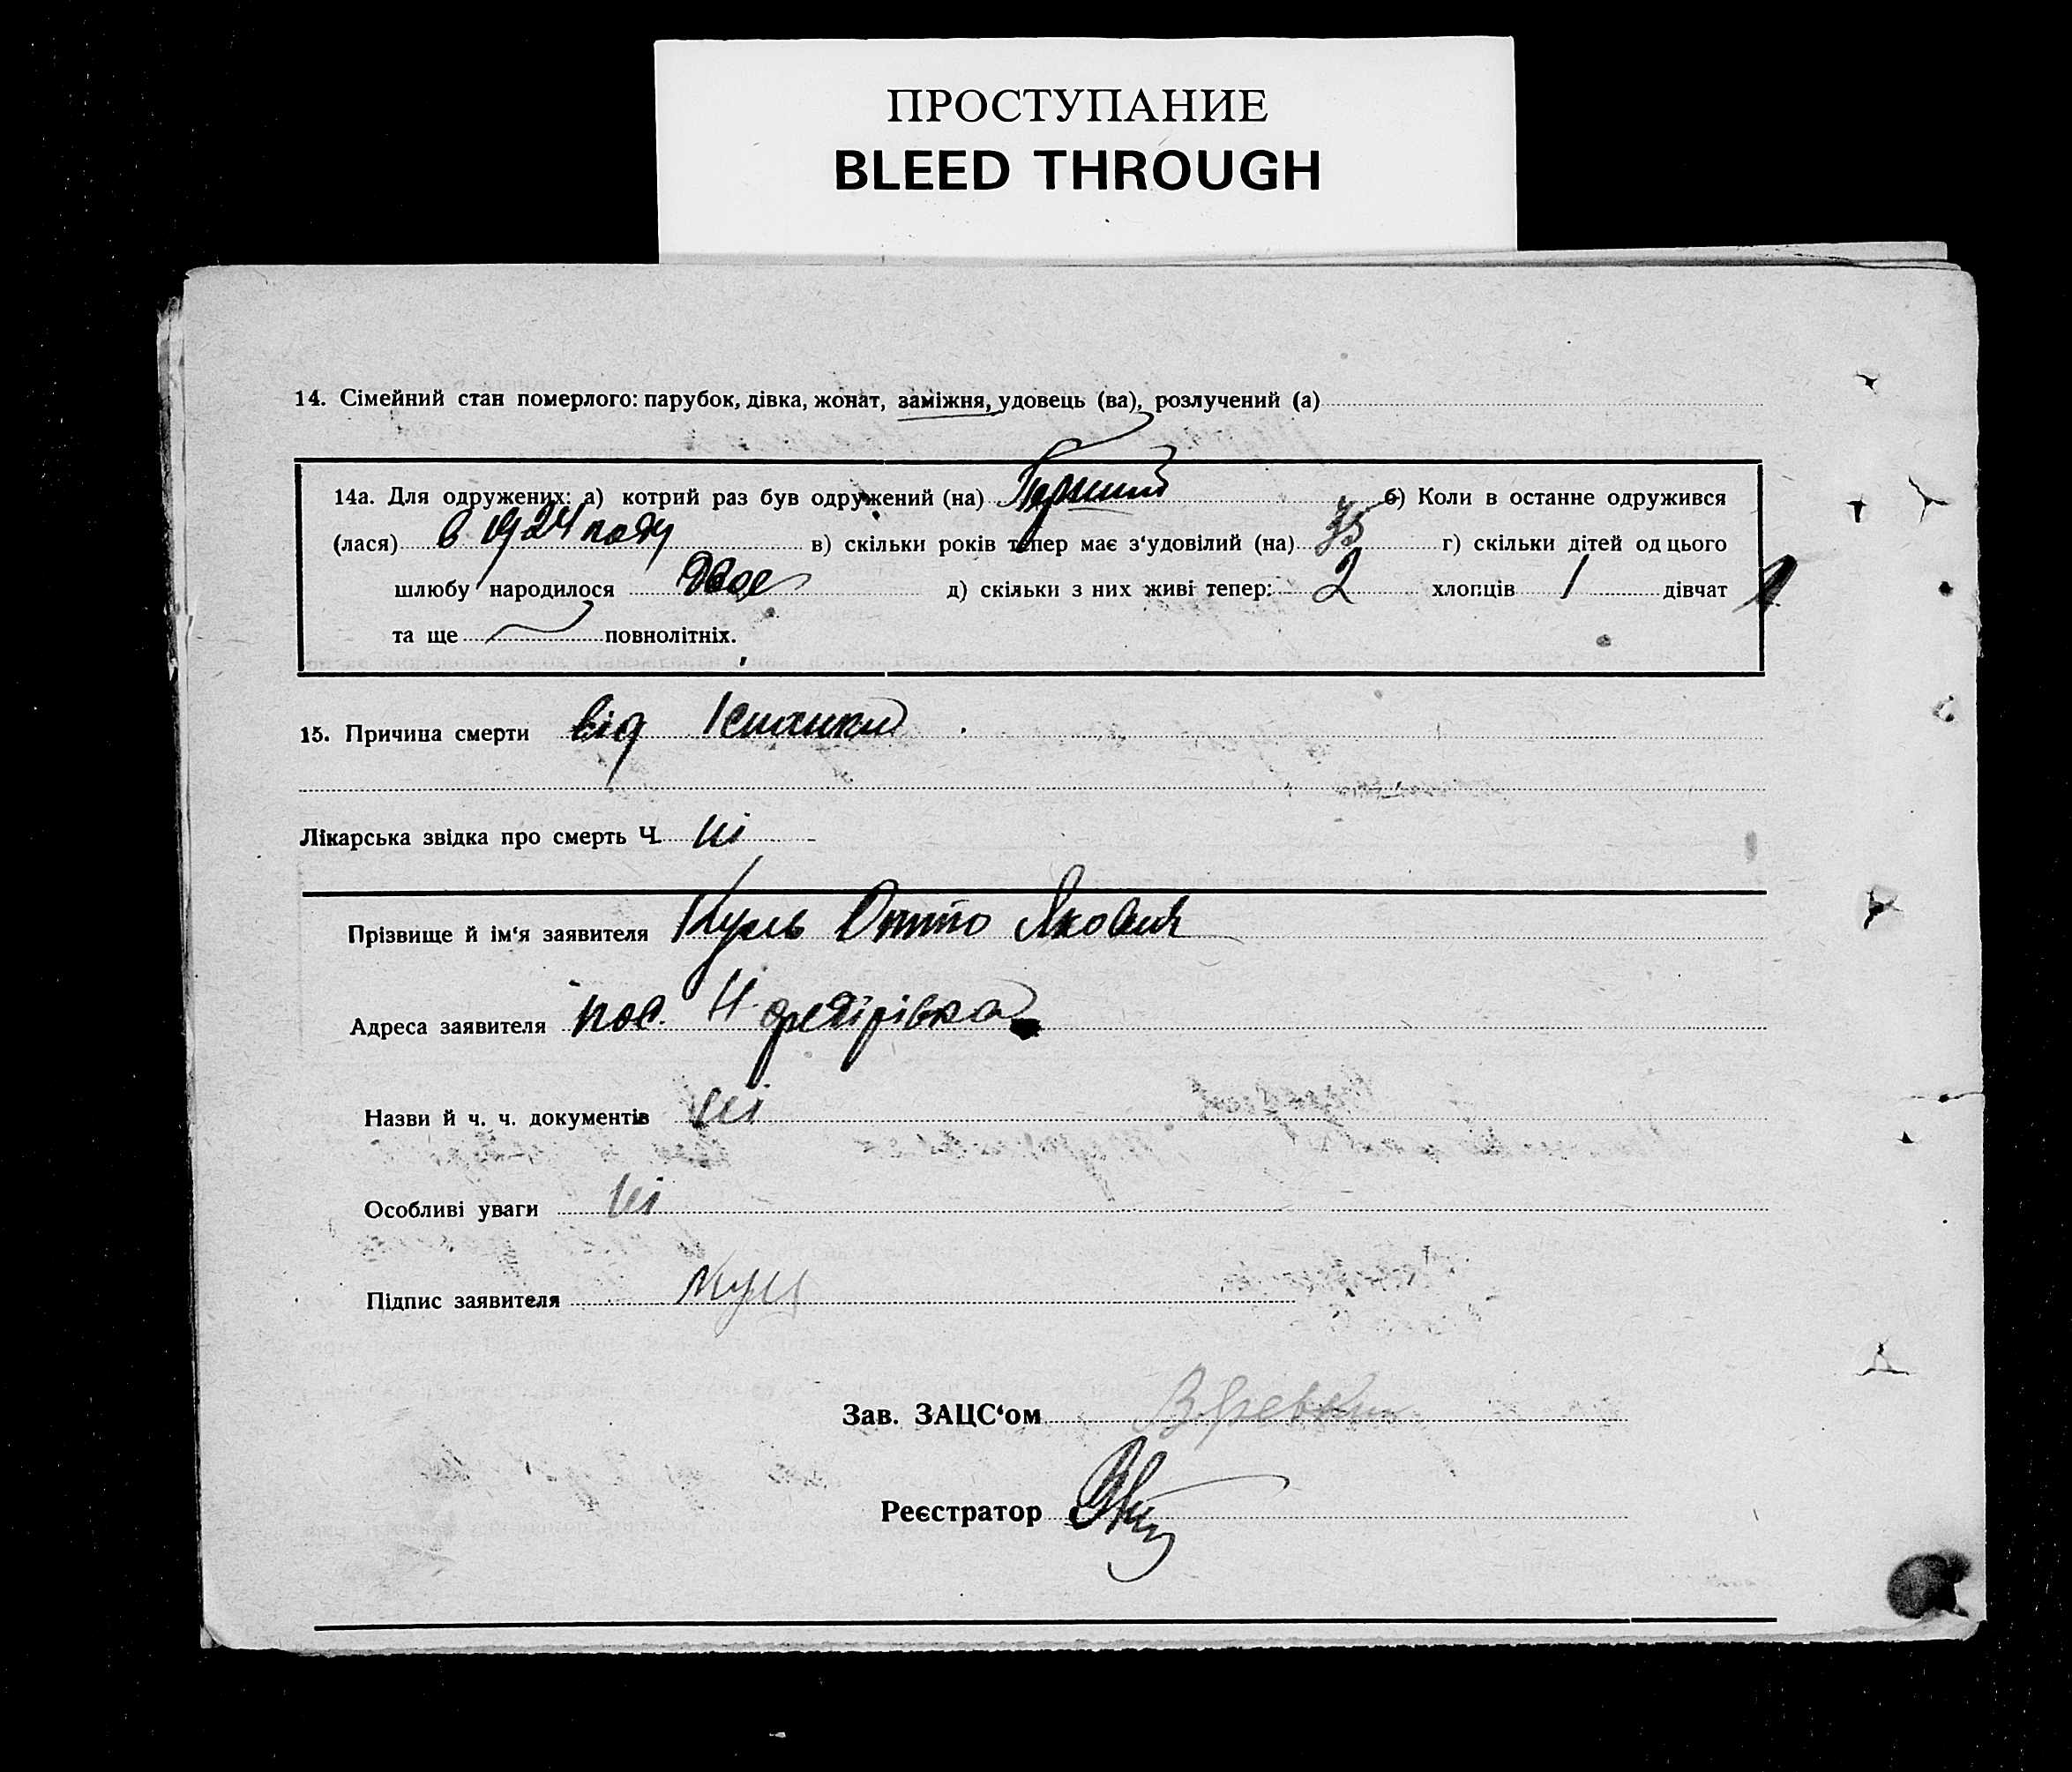 ПРОСТУПАНИЕ
BLEED THROUGH
14. Сімейний стан померлого: парубок, дівка, жонат, заміжня, удовець (ва), розлучений (а)
14а. Для одружених: а) котрий раз був одружений (на) Перший б) Коли в останнє одружився
(лася) в 1924 году в) скільки років тепер має з‘удовілий (на) 35 г) скільки дітей од цього
шлюбу народилося двое д) скільки з них живі тепер: 2 хлопців 1 дівчат 1
та ще повнолітніх.
15. Причина смерти від
Лікарська звідка про смерть Ч. ні
Прізвище й ім‘я заявителя Куль Отто Якович
Адреса заявителя пос. Н
Назви й ч. ч. документів ні
Особливі уваги ні
Підпис заявителя
Зав. ЗАЦС‘ом
Реєстратор